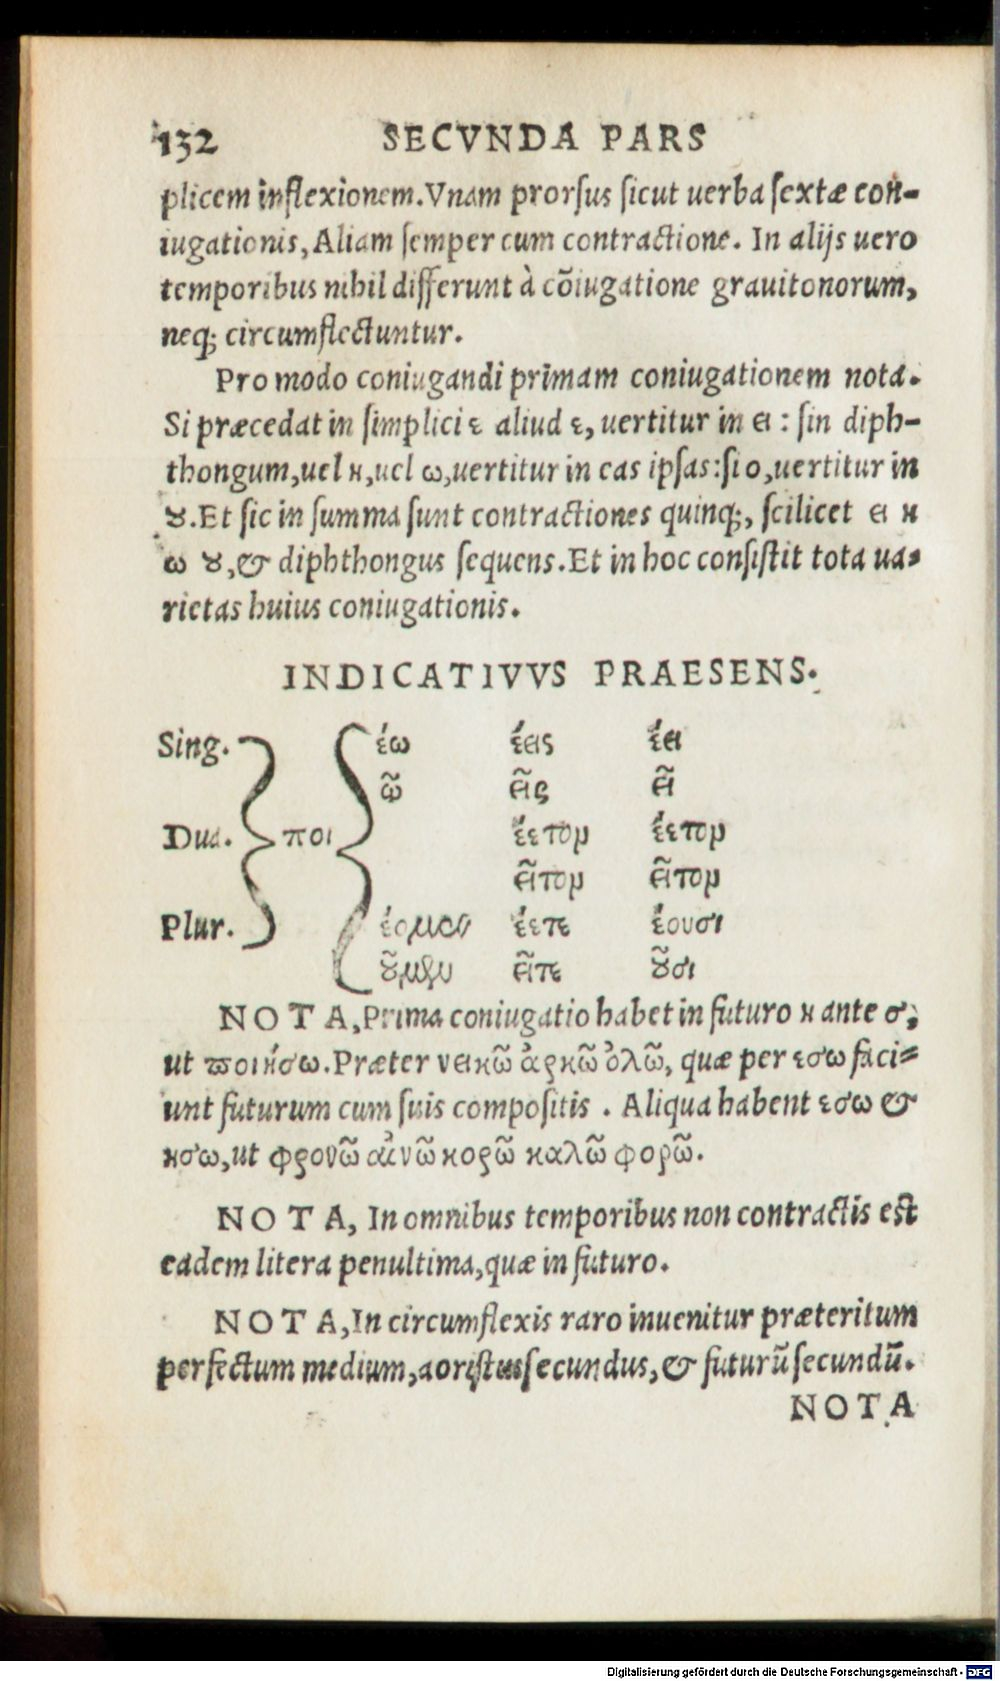 132 SECVNDA PARS
plicem inflexionem. Vnam prorſus ſicut uerba ſextæ con-
iugationis, Aliam ſemper cum contractione. In alijs uero
temporibus nihil differunt à cõiugatione grauitonorum,
neq; circumflectuntur.
Pro modo coniugandi primam coniugationem nota.
Si præcedat in ſimplici ε aliud ε, uertitur in ει : ſin diph-
thongum, uel η, uel ω, uertitur in eas ipſas: ſi ο, uertitur in
ȣ. Et ſic in ſumma ſunt contractiones quinq;, ſcilicet ει η
ω ȣ, & diphthongus ſequens. Et in hoc conſiſtit tota ua-
rietas huius coniugationis.
INDICATIVVS PRAESENS.
Sing. έω έεις έει
ῶ εῖς εῖ
Dua. ποι έετον έετον
εῖτον εῖτον
Plur. έομεν έετε έουσι
ȣ͂μεν εῖτε ȣ͂σι
NOTA, Prima coniugatio habet in futuro η ante σ,
ut ποιήσω. Præter νεικῶ ἀρκῶ ὀλῶ, quæ per εσω faci-
unt futurum cum ſuis compoſitis . Aliqua habent εσω &
ησω, ut φρονῶ αἰνῶ κορῶ καλῶ φορῶ.
NOTA, In omnibus temporibus non contractis eſt
eadem litera penultima, quæ in futuro.
NOTA, In circumflexis raro inuenitur præteritum
perfectum medium, aoriſtus ſecundus, & futurũ ſecundũ.
NOTA
Digitalisierung gefördert durch die Deutsche Forschungsgemeinschaft - DFG